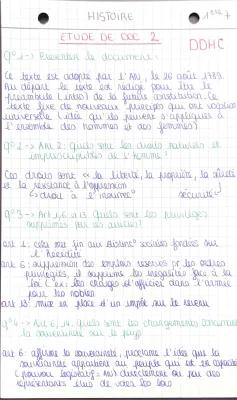 HISTOIRE
ETUDE DE DOC 2
DDHC
q°1 -> Presenter le document:
Ce texte est adopté par l'AN, le 26 août 1789.
Au départ le texte est rédigé pour être le
préambule (intro) de la future constitution. Ce
texte fixe de nouveaux principes qui ont vocation
universelle (idée qu'ils peuvent s'appliquer à
l'ensemble des hommes et des femmes)
q°2 -> Art 2: Quels sont les droits naturels et
imprescriptibles de l'homme?
Ces droits sont « la liberté, la propriété, la sûreté
et la résistance à l'oppression
droit à l'insurrection sécurité
q°3 -> Art 1, 6 et 13 Quels sont les privilèges
supprimés par ces articles?
art 1: cela met fin aux sociétés fondées sur
l'hérédité
art 6: suppression des emplois réservés pr les ordres
privilégiés, il supprime les inégalités face à la
loi (ex: les charges d'officier dans l'armée
pour les nobles
art 13: mise en place d'un impôt sur le revenu
q°4 -> Art 6, 14, Quels sont les changements concernant
la souveraineté sur le pays
art 6: affirme la souveraineté, proclame l'idée que la
souveraineté appartient au peuple qui est en capacité
(pouvoir législatif) directement ou par des
représentants élus de voter les lois